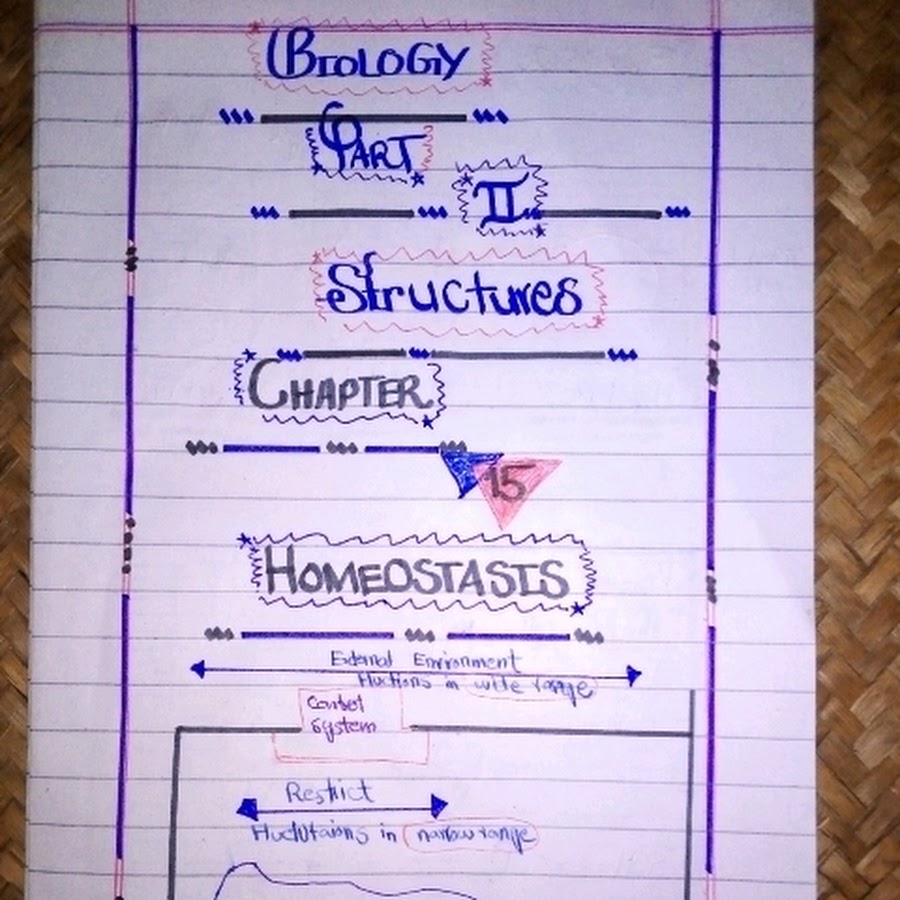 BIOLOGY
PART
II
Structures
CHAPTER
15
HOMEOSTASIS
External Environment
Fluctions in wide range
Contol
system
Restrict
Fluctutaions in narrow range